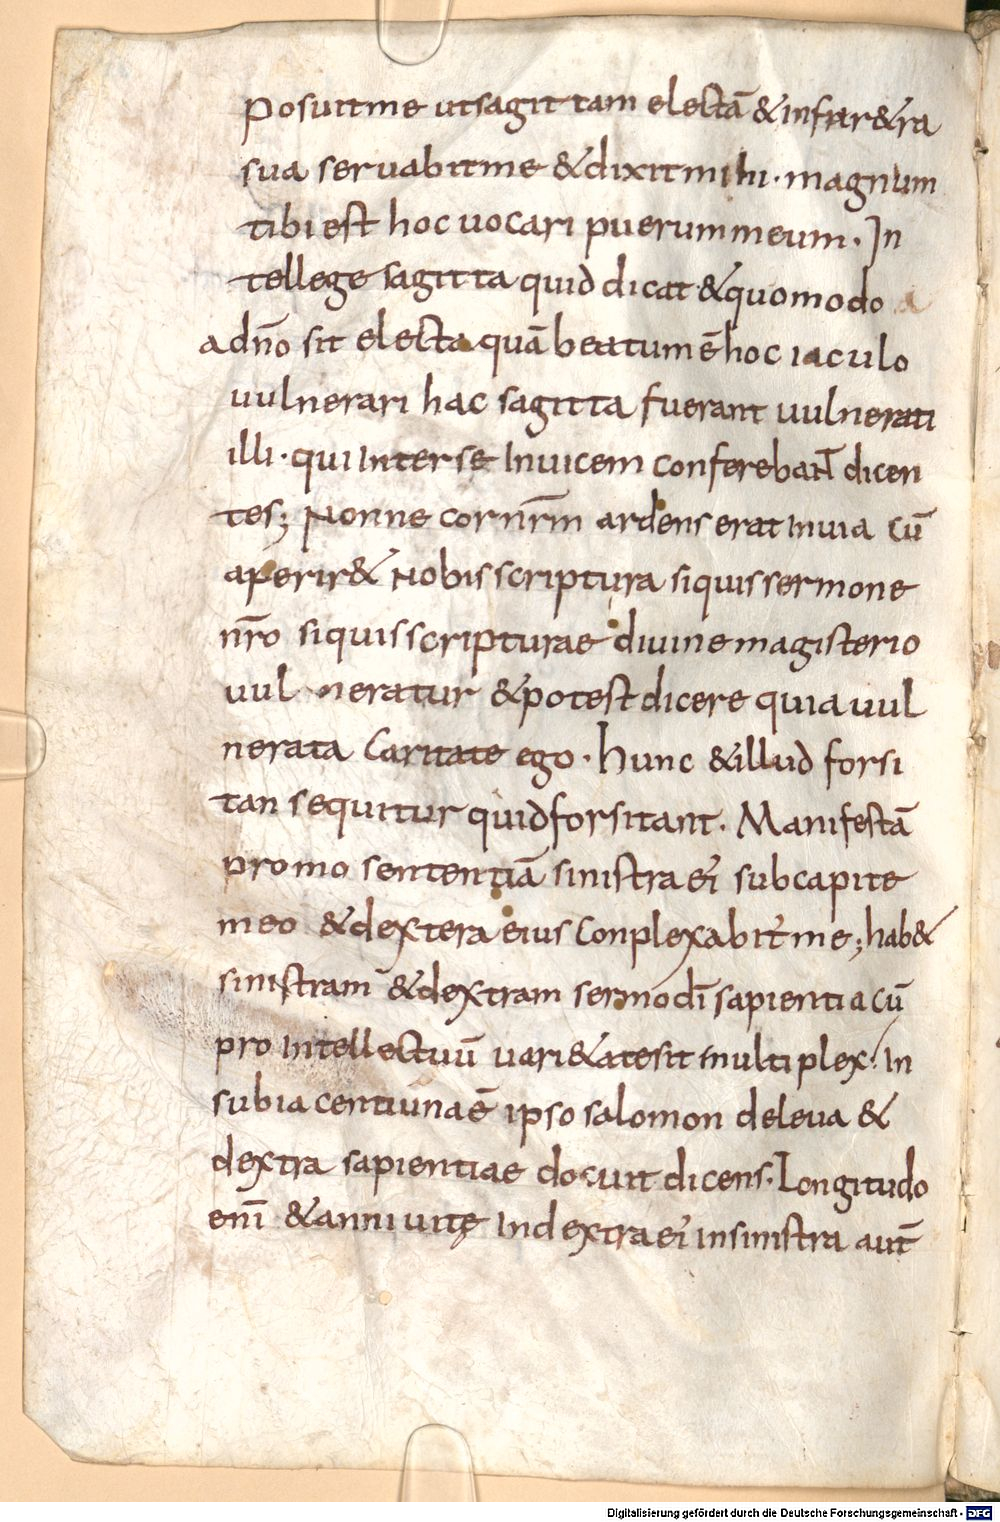 posuit me ut sagit tam electā & infar&ra
sua servabit me & dixit mihi · magnum
tibi est hoc vocari puerum meum · In
tellege sagitta quid dicat & quomodo
a dn̄o sit electa quā beatum ē hoc iaculo
vulnerari hac sagitta fuerant vulnerati
illi · qui inter se invicem conferebaNT dicen
tes; Nonne cor nr̄m ardens erat in via cū
aperir& Nobis scriptura si quis sermone
nr̄o si quis scripturae divine magisterio
vul neratur & potest dicere quia vul
nerata Caritate ego · hunc & illud forsi
tan sequitur quid forsitant · Manifestā
promo sententiā sinistra ei' sub capite
meo & dextera eius Conplexabit' me; hab&
sinistram & dextram sermo dī sapientia cū
pro Intellectuū vari&ate sit multiplex · In
subiacenti una ē ipso salomon de leva &
dextra sapientiae docuit dicens · Longitudo
enī & anni vitę In dextra ei' in sinistra aut̄
Digitalisierung gefördert durch die Deutsche Forschungsgemeinschaft - DFG